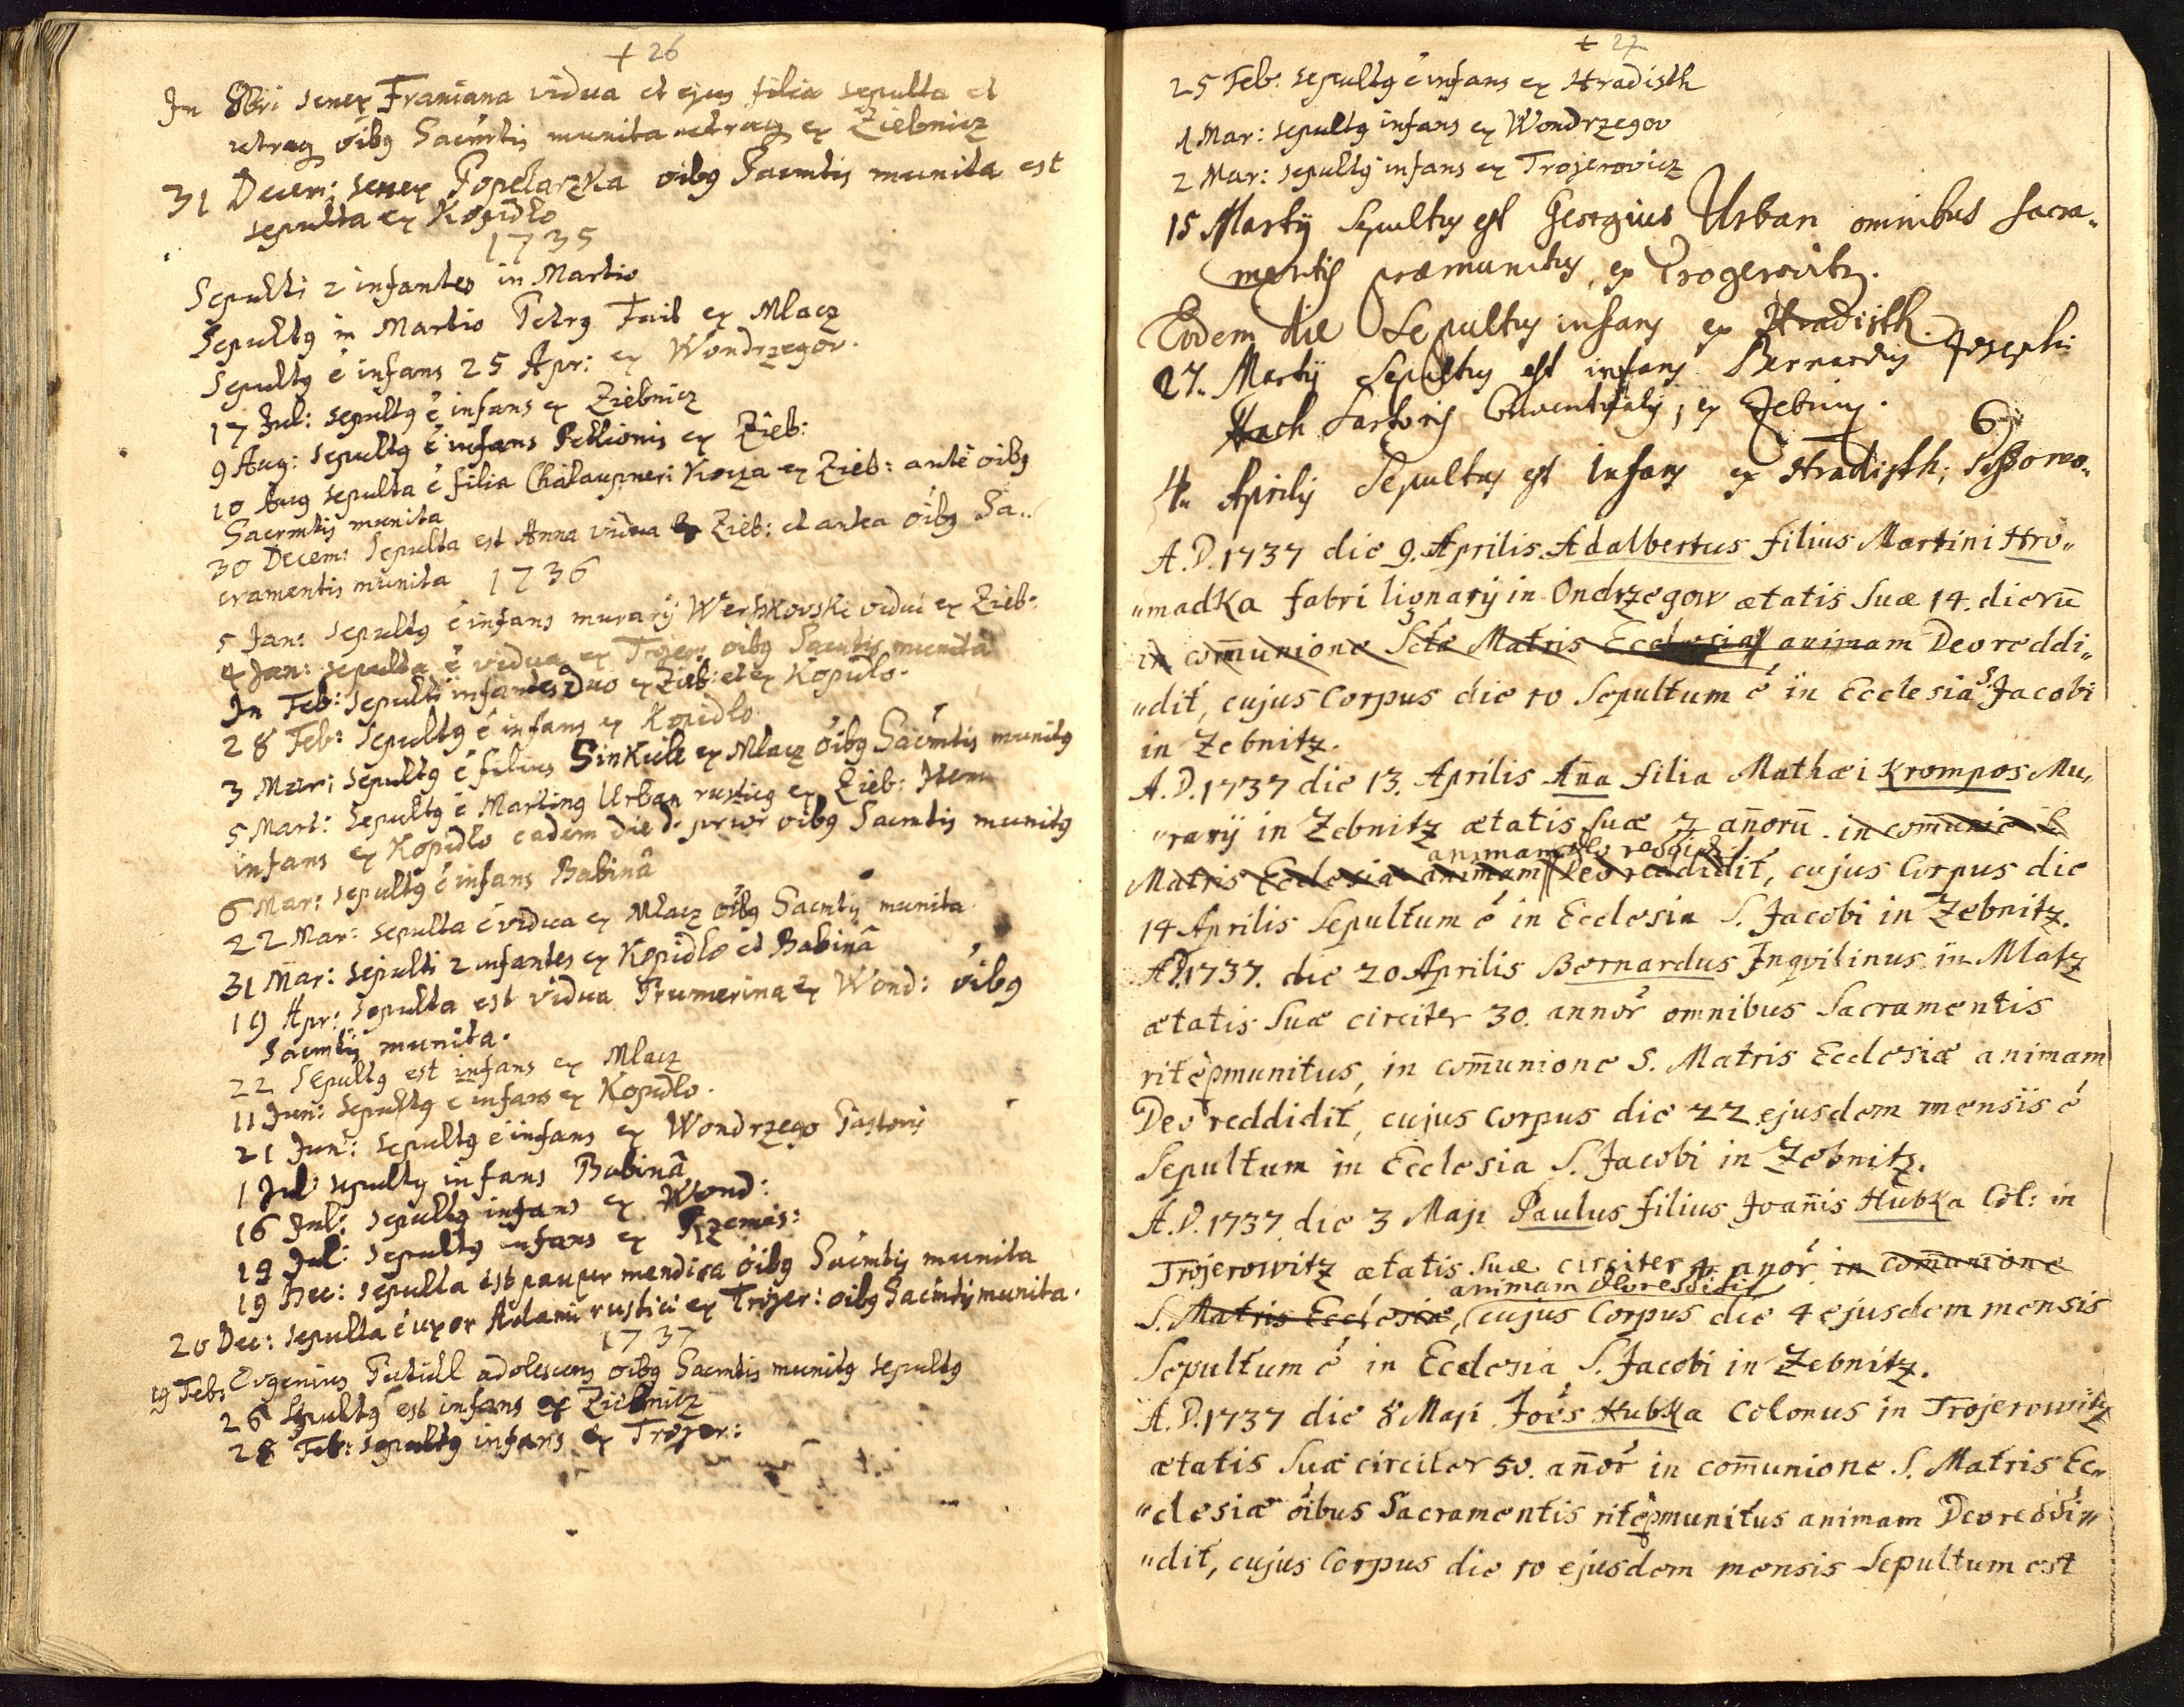 + 26
In 8bri senex Franiana vidua et ejus filia sepulta et
utraq oibg Sacmtis munita utraq ex Ziebnicz
31 Decem: senex Popelarzka oibg Sacmtis munita est
sepulta ex Kopidlo
1735
Sepulti 2 infantes in Martio
Sepultg in Martio Petrg Fait ex Mlacz
Sepultg é infans 25 Apr: ex Wondrzegov.
17 Jul: sepultg é infans ex Ziebnicz
9 Aug: sepultg é infans Pellionis ex Zieb:
10 Aug sepulta é filia Chalaupneri Koza ex Zieb: ante oibg
Sacrmtis munita
30 Decem: Sepulta est Anna vidua ex Zieb: et antea oibg Sa..
cramentis munita 1736
5 Jan: sepultg é infans murarij Werhkovski vidui ex Zieb:
4 Jan: sepulta é vidua ex Trojer: oibg Sacmtis munita
In Feb: sepulti infantes duo ex Zieb: et ex Kopidlo.
28 Feb: sepultg é infans ex Kopidlo
3 Mar: sepultg é filius Sinkule ex Mlacz oibg Sacmtis munitg
5 Mart: Sepultg é Marting Urban rusticg ex Zieb: Item
infans ex Kopidlo eadem die d. prior oibg Sacmtis munitg
6 Mar: sepultg é infans Babinâ
22 Mar: sepulta é vidua ex Mlacz oibg Sacmtis munita
31 Mar: sepulti 2 infantes ex Kopidlo et Babinâ
19 Apr: sepulta est vidua Prumerina ex Wond: oibg
Sacmtis munita.
22 Sepultg est infans ex Mlacz
11 Jun: sepultg é infans ex Kopidlo.
21 Jun: sepultg é infans ex Wondrzego Pastoris
1 Jul: sepultg infans Babinâ
16 Jul: sepultg infans ex Wond:
19 Jul: sepultg infans ex Rzemes:
19 Dec: sepulta est pauper mendica oibg Sacmtis munita
20 Dec: sepulta é uxor Adami rustici ex Trojer: oibg Sacmtis munita.
1737
19 Feb: Evgenius Putull adolescens oibg Sacmtis munitg sepultg
26 Sepultg est infans ex Ziebnicz
28 Feb: sepultg infans ex Trojer:
+ 27
25 Feb: sepultg é infans ex Hradisth
1 Mar: sepultg infans ex Wondrzegov
2 Mar: sepultg infans ex Trojerovicz
15 Martij Sepultus est Georgius Urban omnibus sacra„
mentis præmunitus, ex Trogerovitz.
Eodem die Sepultus infans ex Hradisth.
27. Martij Sepultus est infans Bernardus Josephi
Hach Sartoris Conventualis, ex Zebniz.
4. Aprilis Sepultus est Infans ex Hradisth;
A.D. 1737 die 9. Aprilis Adalbertus filius Martini Hro„
„madka fabri lignarij in Ondrzegow ætatis suæ 14. dierū
in com̄unione Sctæ Matris Ecclesiæ animam Deo reddi„
„dit, cujus Corpus die 10 Sepultum é in Ecclesia S Jacobi
in Zebnitz.
A.D. 1737 die 13. Aprilis An̄a filia Mathæi Krompos Mu„
„rarij in Zebnitz ætatis suæ 7 an̄orū in com̄unio S
animam Deo reddidit
Matris Ecclesiæ animam Deo reddidit, cujus Corpus die
14 Aprilis Sepultum é in Ecclesia S. Jacobi in Zebnitz.
A.D. 1737. die 20 Aprilis Bernardus Inqvilinus in Matz
ætatis suæ circiter 30. annor omnibus Sacramentis
ritè pmunitus, in com̄unione S. Matris Ecclesiæ animam
Deo reddidit, cujus Corpus die 22 ejusdem mensis é
Sepultum in Ecclesia S. Jacobi in Zebnitz.
A.D. 1737 die 3 Maji Paulus filius Joan̄is Hubka Col: in
Trojerowitz ætatis suæ circiter 4 anor in com̄unione
animam Deo reddidit
S. Matris Ecclesiæ, cujus Corpus die 4 ejusdem mensis
Sepultum é in Ecclesia S. Jacobi in Zebnitz.
A.D. 1737 die 8 Maji Joēs Hubka Colonus in Trojerowitz
ætatis suæ circiter 50. an̄or in com̄unione S. Matris Ec„
„clesiæ oibus Sacramentis ritè pmunitus animam Deo reddi„
„dit, cujus Corpus die 10 ejusdem mensis Sepultum est